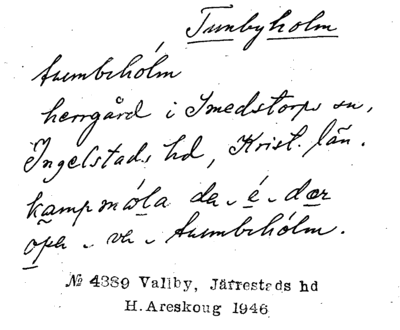 Tunbyholm
tumbehólm
herrgård i Smedstorps sn,
Ingelstads hd, Krist. län.
kampmåla da é der
opa va tumbehólm.
№ 4389 Vallby, Järrestads hd
H. Areskoug 1946